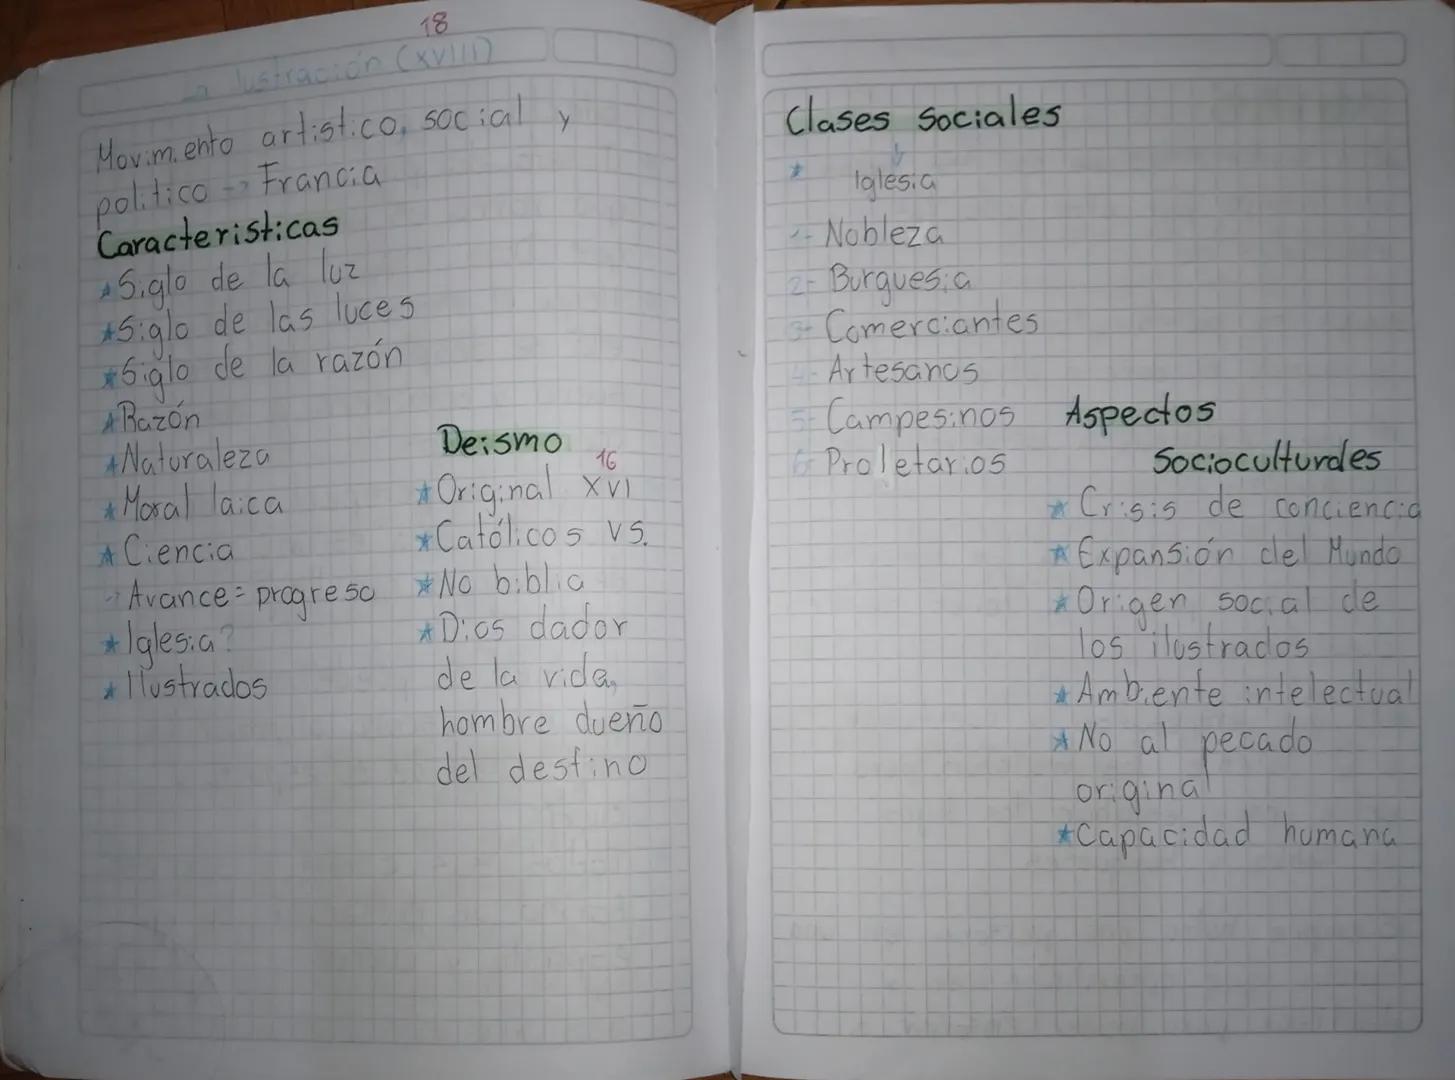 18
Ilustración (XVIII)
Movimiento artistico, social y
politico -> Francia
Caracteristicas
*Siglo de la luz
*Siglo de las luces
*Siglo de la razón
*Razón
*Naturaleza
*Moral laica
*Ciencia
-> Avance = progreso
*Iglesia?
*Ilustrados
Deismo
16
*Original XVI
*Católicos vs.
*No biblia
*Dios dador
de la vida,
hombre dueño
del destino
Clases Sociales
* Iglesia
1- Nobleza
2- Burguesia
3- Comerciantes
4- Artesanos
5- Campesinos
6- Proletarios
Aspectos
Socioculturales
*Crisis de conciencia
*Expansión del Mundo
*Origen social de
los ilustrados
*Ambiente intelectual
*No al pecado
original
*Capacidad humana